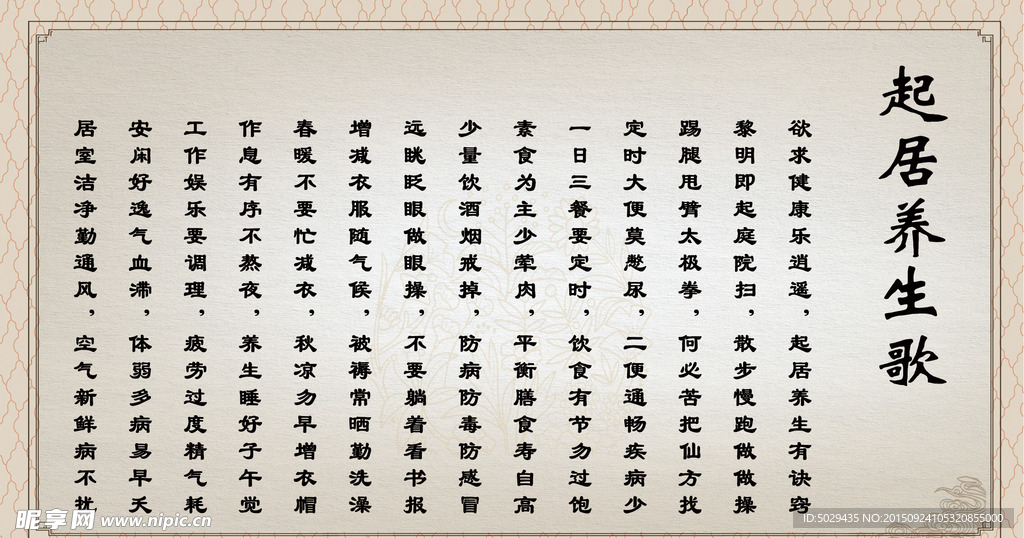 起居养生歌
欲求健康乐逍遥,起居养生有诀窍
黎明即起庭院扫,散步慢跑做做操
踢腿甩臂太极拳,何必苦把仙方找
定时大便莫憋尿,二便通畅疾病少
一日三餐要定时,饮食有节勿过饱
素食为主少荤肉,平衡膳食寿自高
少量饮酒烟戒掉,防病防毒防感冒
远眺眨眼做眼操,不要躺着看书报
增减衣服随气候,被褥常晒勤洗澡
春暖不要忙减衣,秋凉勿早增衣帽
作息有序不熬夜,养生睡好子午觉
工作娱乐要调理,疲劳过度精气耗
安闲好逸气血滞,体弱多病易早夭
居室洁净勤通风,空气新鲜病不扰
昵享网 www.nipic.cn
ID:5029435 NO:20150924105320855000